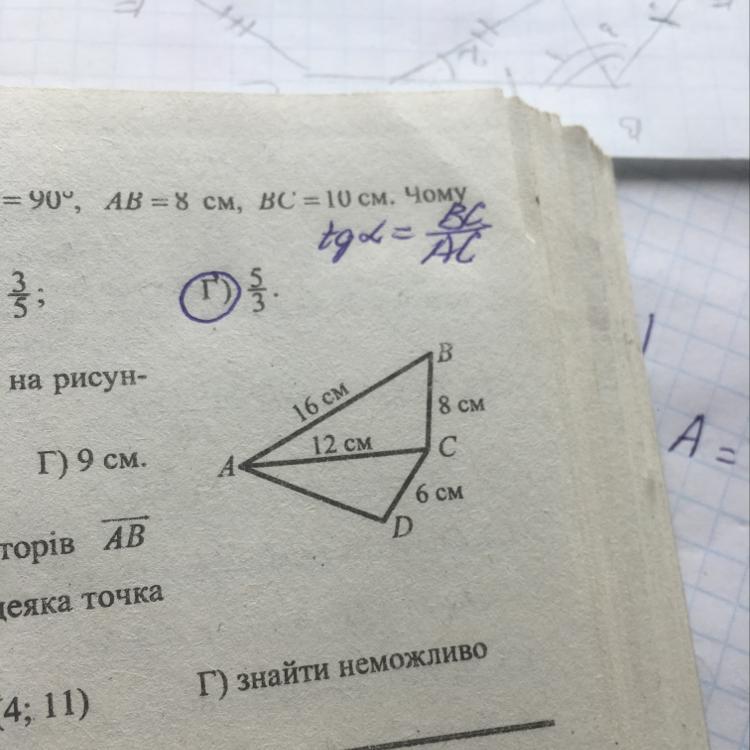 = 90°, AB = 8 см, BC = 10 см. Чому
tgα = BC/AC
3/5;
Г) 5/3.
на рисун-
B
16 см
8 см
12 см
Г) 9 см.
A
C
6 см
D
торів AB
деяка точка
(4; 11)
Г) знайти неможливо
A =